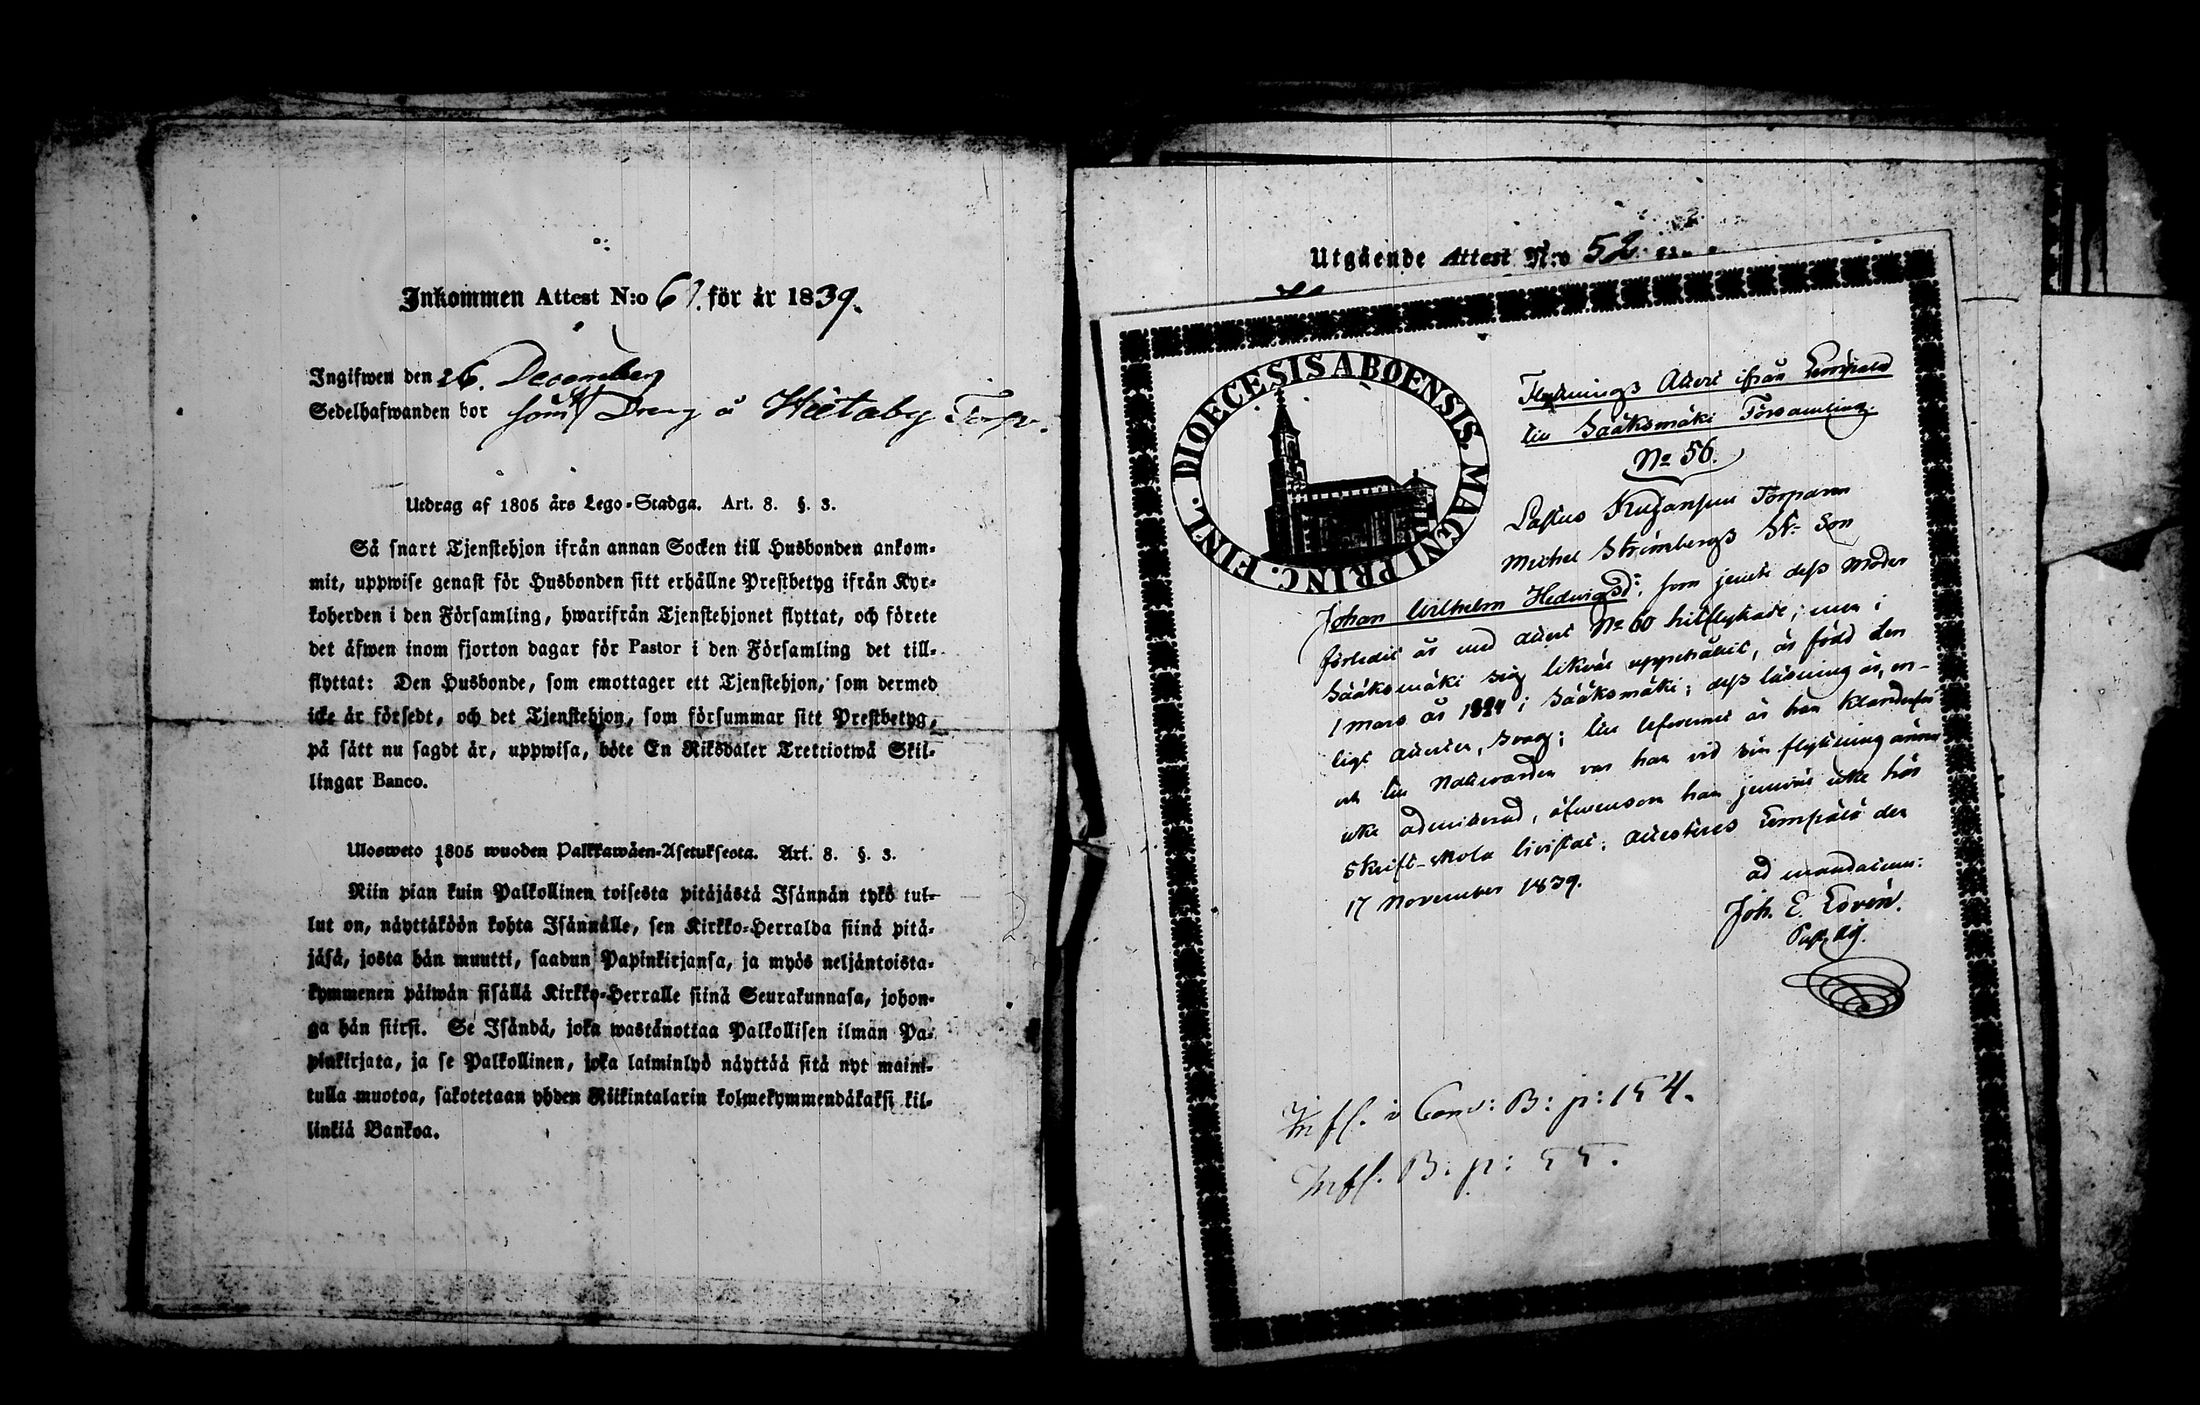 Inkommen Attest N:o 61. för år 1839.
Ingifwen den 26. December
Sedelhafwanden bor som Dreng å Hietaby Torp.
Utdrag af 1805 års Lego-Stadga. Art. 8. §. 3.
Så snart Tjenstehjon ifrån annan Socken till Husbonden ankom-
mit, uppwise genast för Husbonden sitt erhållne Prestbetyg ifrån Kyr-
koherden i den Församling, hwarifrån Tjenstehjonet flyttat, och förete
det äfwen inom fjorton dagar för Pastor i den Församling det till-
flyttat: Den Husbonde, som emottager ett Tjenstehjon, som dermed
icke är försedt, och det Tjenstehjon, som försummar sitt Prestbetyg,
på sätt nu sagdt är, uppwisa, böte En Riksdaler Trettiotwå Skil-
lingar Banco.
Ulosweto 1805 wuoden Palkkawäen-Asetuksesta. Art. 8. §. 3.
Niin pian kuin Palkollinen toisesta pitäjästä Isännän tykö tul-
lut on, näyttäköön kohta Isännälle, sen Kirkko-Herralda siinä pitä-
jäsä, josta hän muutti, saadun Papinkirjansa, ja myös neljäntoista-
kymmenen päiwän sisällä Kirkko-Herralle siinä Seurakunnasa, johon-
ga hän siirsi. Se Isändä, joka wastanottaa Palkollisen ilman Pa-
pinkirjata, ja se Palkollinen, joka laiminlyö näyttää sitä nyt maini-
tulla muotoa, sakotetaan yhden Riikintalarin kolmekymmendäkaksi kil-
linkiä Bankoa.
Utgående Attest N:o 52
DIOECESIS ABOENSIS. MAGNI PRINC. FINL.
Flyttnings Attest ifrån Lempälä
till Sääksmäki Församling.
No 56.
Michel Strömbergs St. Son
Johan Wilhelm Hedvigsd: som jemte dess Moder
förledit år med attest No 60 hitflyttade; men i
Sääksmäki sig likväl uppehållit, är född den
1 mars år 1824 i Sääksmäki; dess läsning är, en-
ligt attesten, svag; till lefvernet är han klanderfri
och till Nattvarden var han vid sin flyttning ännu
icke admitterad, äfvensom han jemväl icke här
Skrift-skola bivistat; attesteras Lempälä den
17 November 1839.
ad mandatum:
Joh. E.
Infl. i Com: B: p: 154.
Infl. B. p: 55.